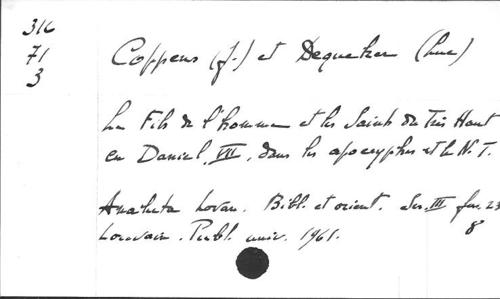 316
71
3
Coppens (J.) et Dequeker (Luc)
Le Fils de l'homme et les Saints du Très Haut
en Daniel, VII, dans les apocryphes et le N.T.
Analecta Lovan. Bibl. et orient. Ser. III fas. 23
Louvain. Publ. univ. 1961. 8